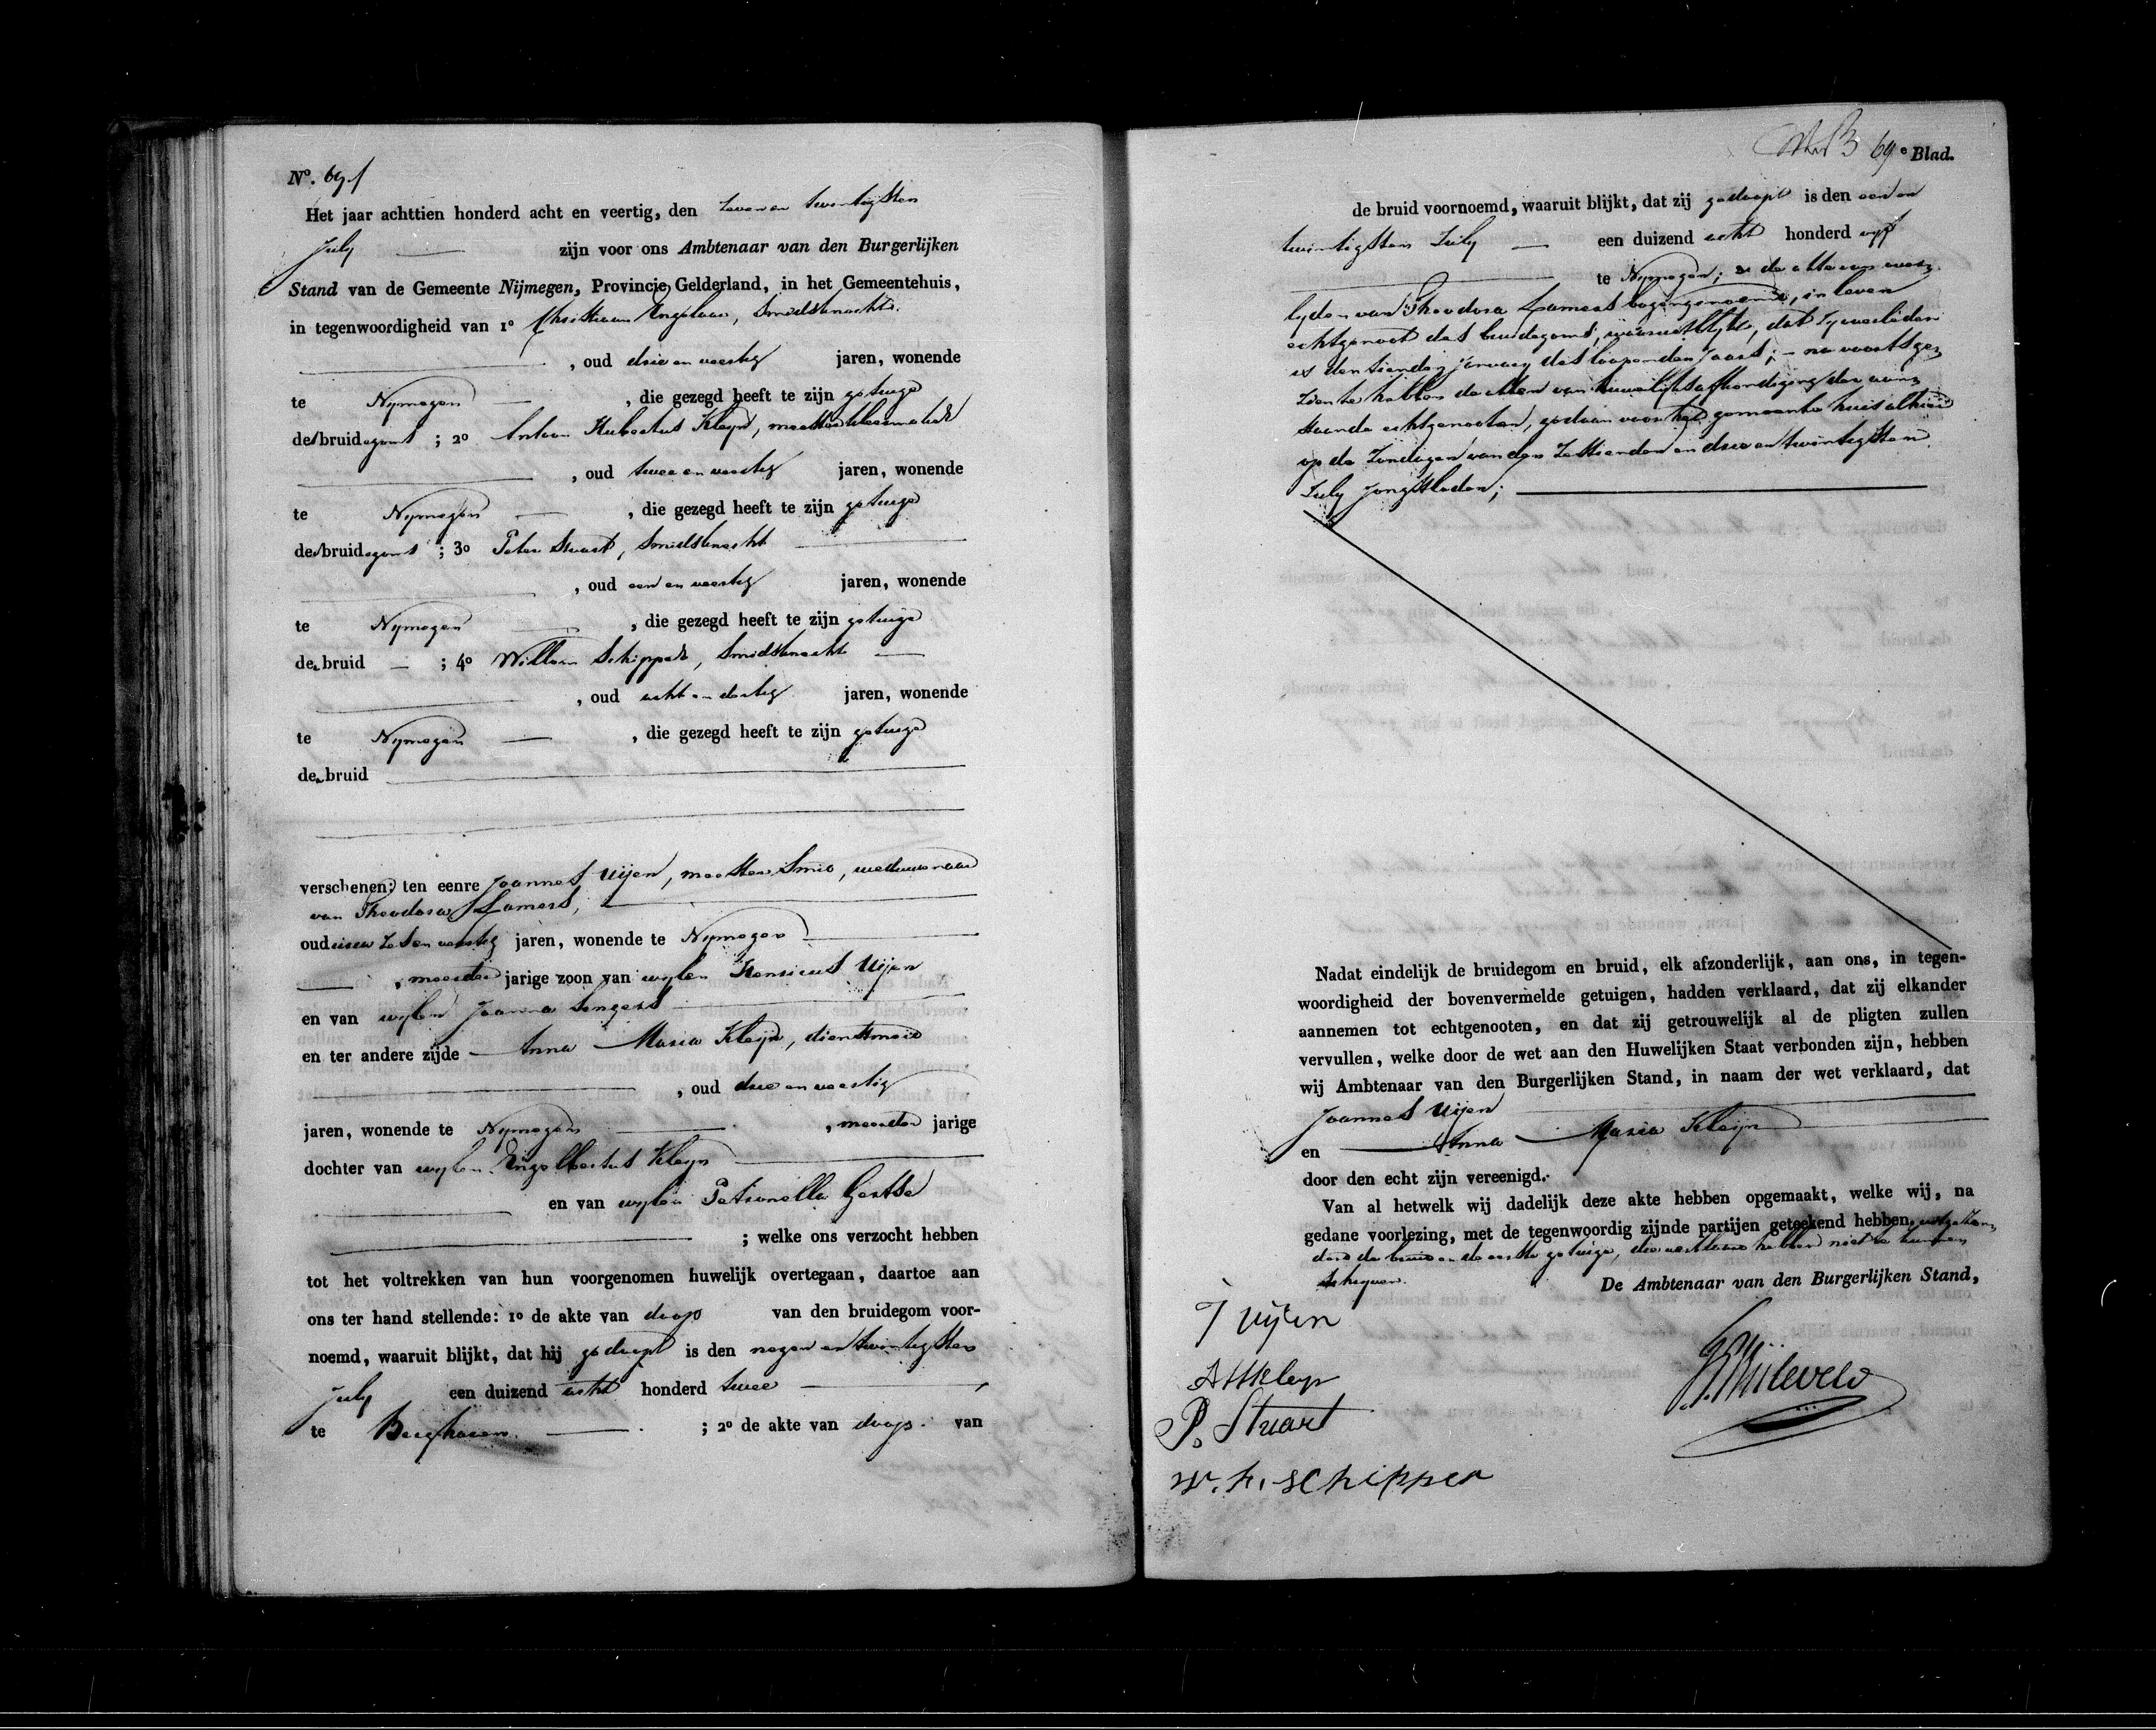 No. 69.
Het jaar achttien honderd acht en veertig, den zeven en twintigsten
July zijn voor ons Ambtenaar van den Burgerlijken
Stand van de Gemeente Nijmegen, Provincie Gelderland, in het Gemeentehuis,
in tegenwoordigheid van 1o Christiaan Engelaar, Smidsknecht
, oud drie en veertig jaren, wonende
te Nymegen , die gezegd heeft te zijn getuige
des bruidegoms ; 2o Antoon Hubertus Kleyn, meester kleermaker
, oud twee en veertig jaren, wonende
te Nymegen , die gezegd heeft te zijn getuige
des bruidegoms ; 3o Peter Stuart, Smidsknecht
, oud een en veertig jaren, wonende
te Nymegen , die gezegd heeft te zijn getuige
de bruid ; 4o Willem Schipper, Smidsknecht
, oud acht en dertig jaren, wonende
te Nymegen , die gezegd heeft te zijn getuige
de bruid
verschenen: ten eenre Joannes Uijen, meester Smid, weduwenaar
van Theodora Lamers,
oud zes en veertig jaren, wonende te Nymegen
, meerder jarige zoon van wylen Henricus Uijen
en van wylen Joanna
en ter andere zijde Anna Maria Kleijn, dienstmeid
, oud drie en veertig
jaren, wonende te Nymegen , meerder jarige
dochter van wylen Engelbertus Kleyn
en van wylen Petronella
; welke ons verzocht hebben
tot het voltrekken van hun voorgenomen huwelijk overtegaan, daartoe aan
ons ter hand stellende: 1o de akte van doop van den bruidegom voor-
noemd, waaruit blijkt, dat hij gedoopt is den negen en twintigsten
July een duizend acht honderd twee
te Bergharen ; 2o de akte van doop van
69e Blad.
de bruid voornoemd, waaruit blijkt, dat zij gedoopt is den een en
twintigsten July een duizend acht honderd vyf
te Nymegen; 3o de akte van over-
lyden van Theodora Lamers bovengenoemd, in leven
echtgenoot des bruidegoms, waaruit blykt, dat zy overleden
is den tienden January des loopenden Jaars; na voorts ge-
zien te hebben de akten van huwelyksafkondiging der aan-
staande echtgenooten, gedaan voor het gemeente huis alhier
op de Zondagen van den zestienden en drie en twintigsten
July jongstleden;
Nadat eindelijk de bruidegom en bruid, elk afzonderlijk, aan ons, in tegen-
woordigheid der bovenvermelde getuigen, hadden verklaard, dat zij elkander
aannemen tot echtgenooten, en dat zij getrouwelijk al de pligten zullen
vervullen, welke door de wet aan den Huwelijken Staat verbonden zijn, hebben
wij Ambtenaar van den Burgerlijken Stand, in naam der wet verklaard, dat
Joannes Uijen
en Anna Maria Kleijn
door den echt zijn vereenigd.
Van al hetwelk wij dadelijk deze akte hebben opgemaakt, welke wij, na
gedane voorlezing, met de tegenwoordig zijnde partijen geteekend hebben, uitgezon-
derd de bruid en de eerste getuige, die verklaard hebben niet te kunnen
schryven.
De Ambtenaar van den Burgerlijken Stand,
J Uijen
A H Kleyn
P. Stuart
W. H. Schipper